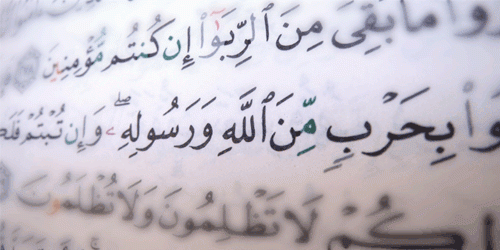 وا۟ مَا بَقِىَ مِنَ ٱلرِّبَوٰٓا۟ إِن كُنتُم مُّؤْمِنِينَ
وا۟ بِحَرْبٍ مِّنَ ٱللَّهِ وَرَسُولِهِۦ ۖ وَإِن تُبْتُمْ فَلَ
كُمْ لَا تَظْلِمُونَ وَلَا تُظْلَمُونَ